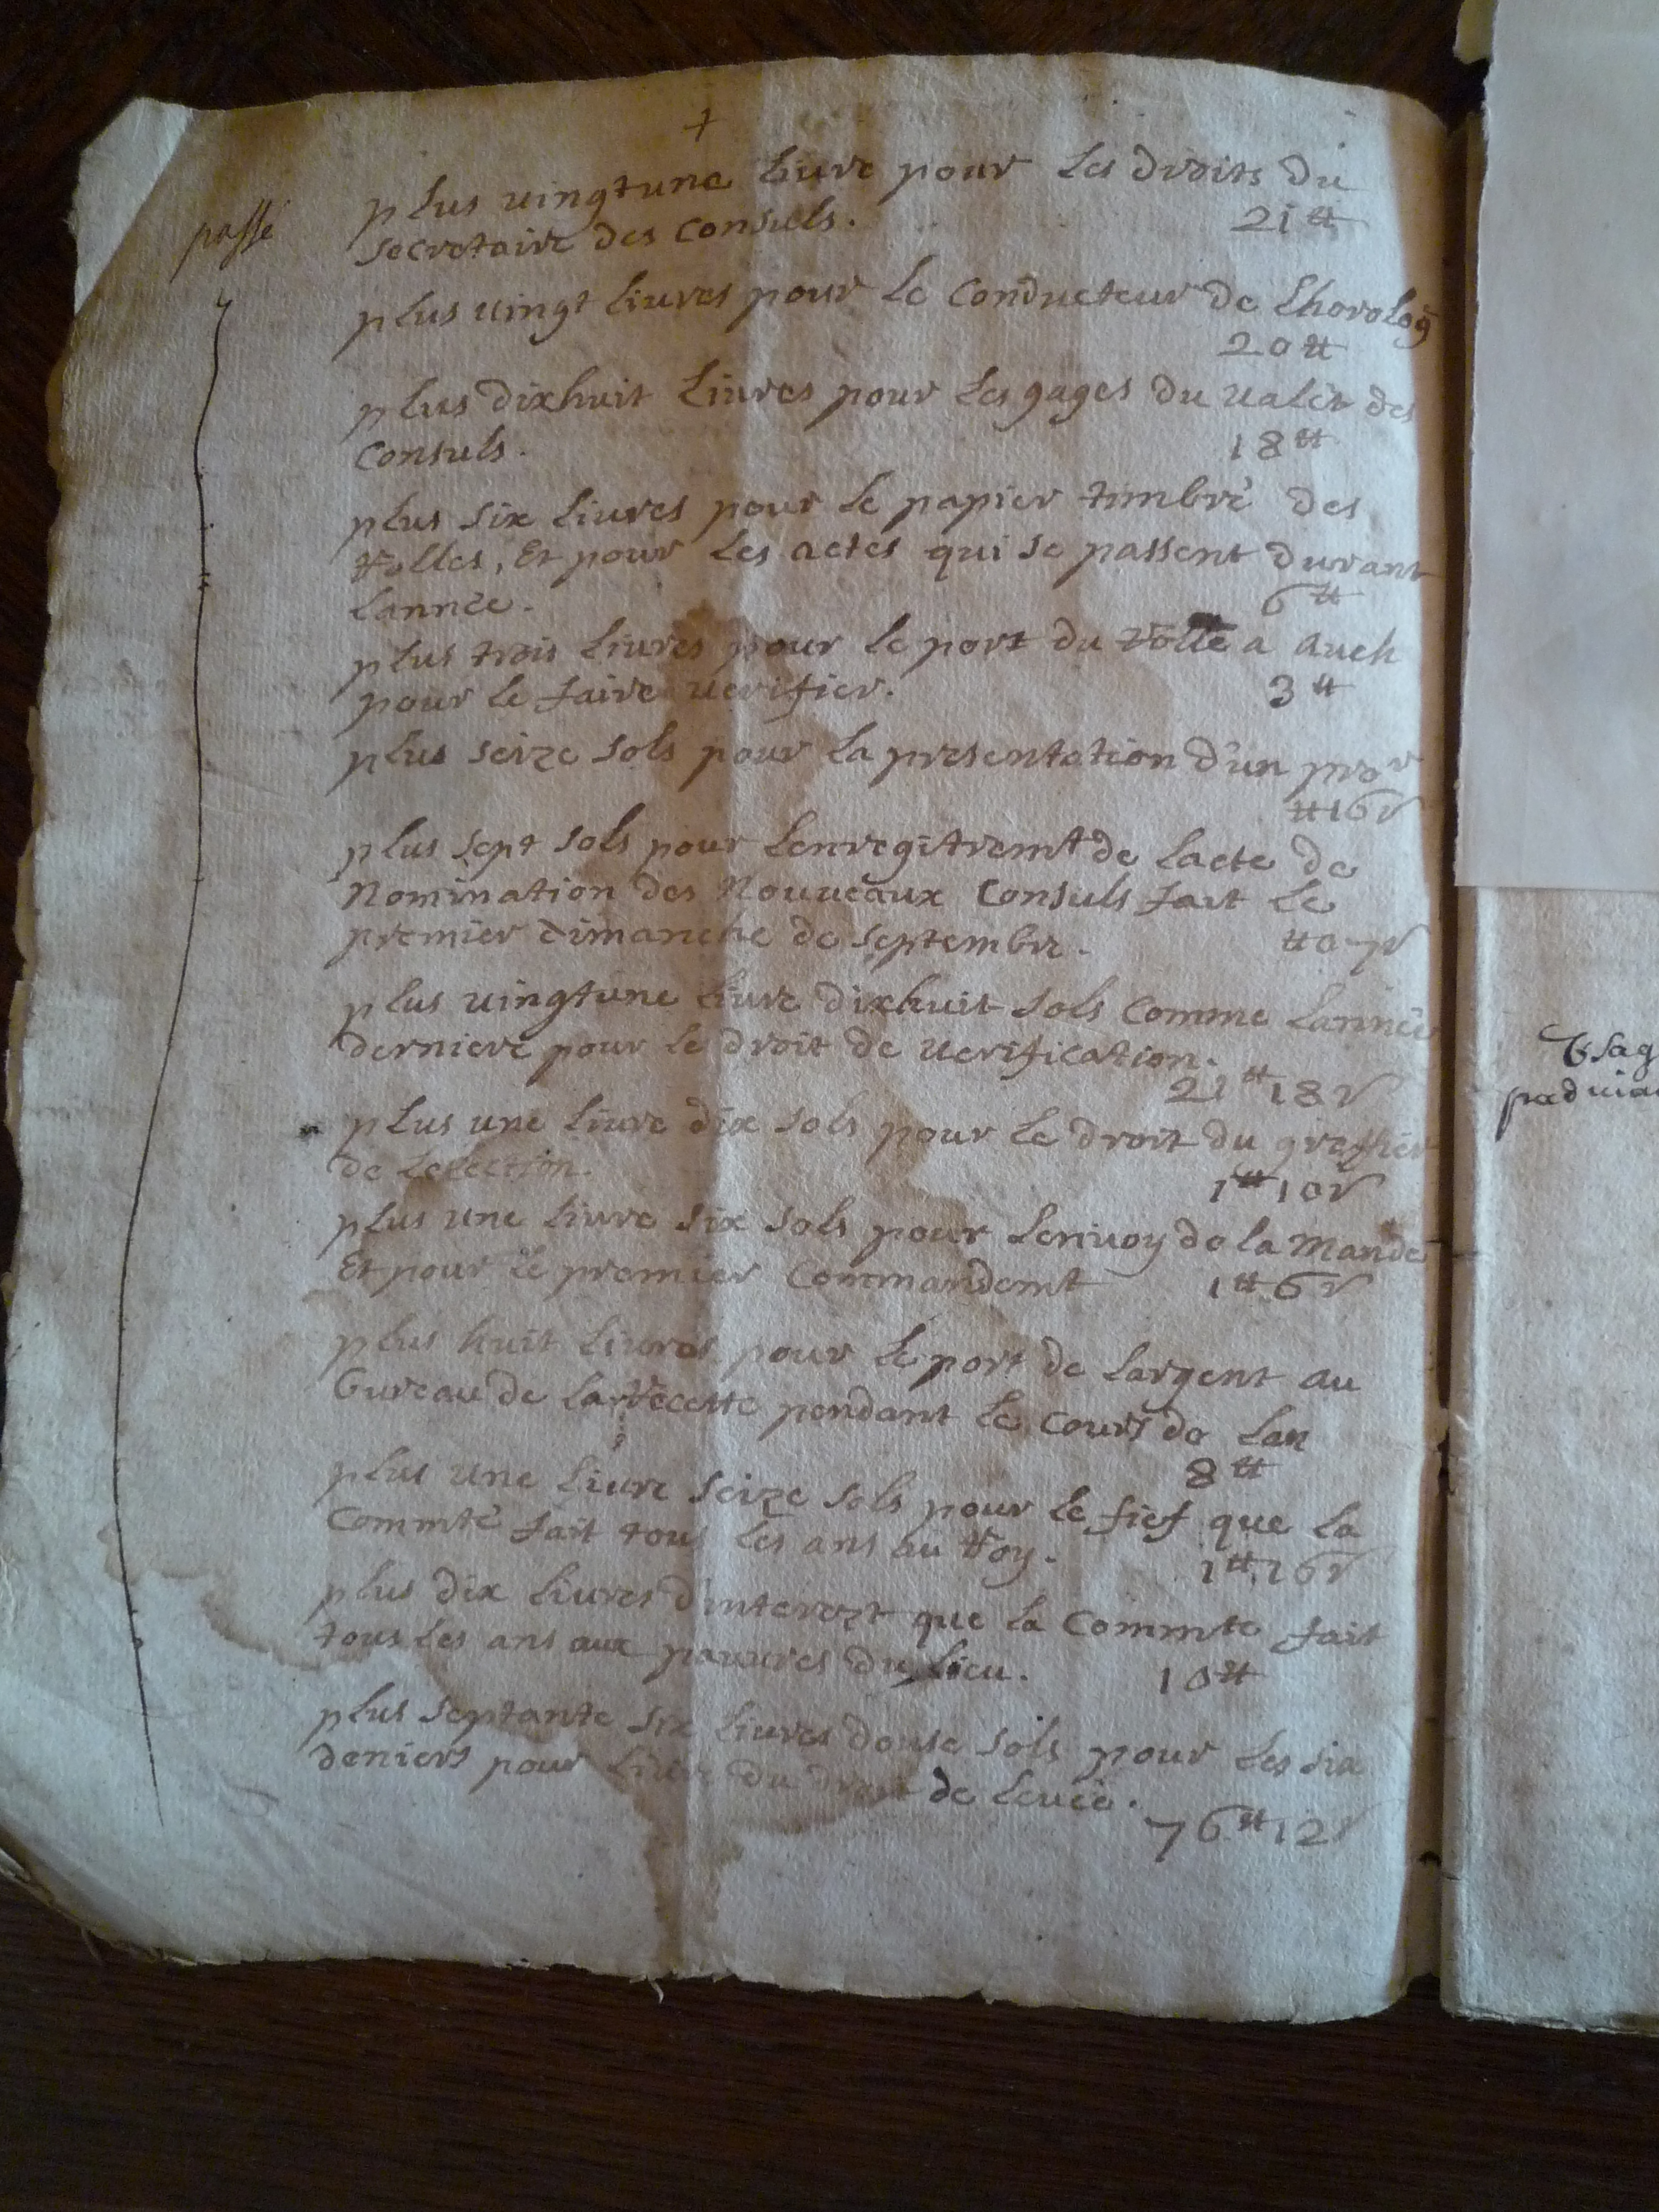 +
passé
plus uingtune liure pour les droits du
secretaire des Consuls. 21 ₶
plus uingt liures pour le Conducteur de Lhorolog
20 ₶
plus dixhuit liures pour les gages du ualet des
Consuls. 18 ₶
plus six liures pour le papier timbré des
rolles, Et pour les actes qui se passent durant
Lannée. 6 ₶
plus trois liures pour le port du rolle a Auch
pour le faire uerifier. 3 ₶
plus seize sols pour la presentation d'un pror
₶ 16 s
plus sept sols pour Lenregitremt de Lacte de
Nomination des Nouueaux Consuls fait le
premier dimanche de septembre. ₶ 0 7 s
plus uingtune liure dixhuit sols Comme Lannée
derniere pour le droit de uerification.
21 ₶ 18 s
plus une liure dix sols pour le droit du greffier
de Lelection. 1 ₶ 10 s
plus une liure six sols pour Lenuoy de la Mande
Et pour le premier Commandemt 1 ₶ 6 s
plus huit liures pour le port de Largent au
Bureau de la recette pendant le Cours de Lan
8 ₶
plus une liure seize sols pour le fief que la
Commté fait tous les ans au Roy. 1 ₶ 16 s
plus dix liures d'interezt que la Commte fait
tous les ans aux pauures du Lieu. 10 ₶
plus septante six liures douse sols pour les six
deniers pour liure du droit de leuée.
76 ₶ 12 s